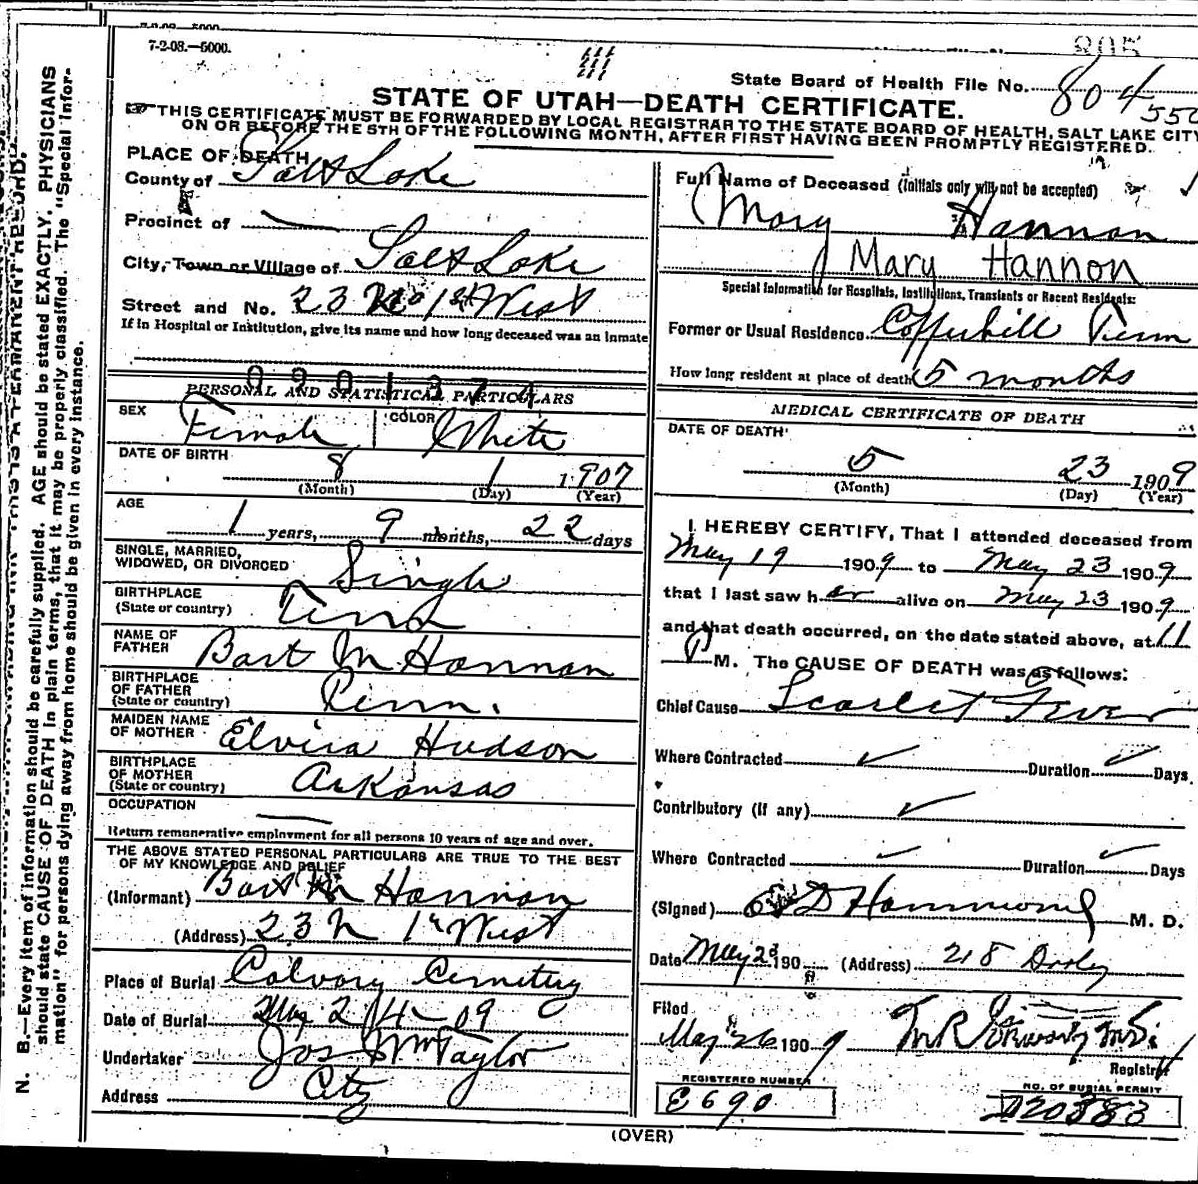 7-2-08.—5000.
805
State Board of Health File No. 804
550
STATE OF UTAH—DEATH CERTIFICATE.
THIS CERTIFICATE MUST BE FORWARDED BY LOCAL REGISTRAR TO THE STATE BOARD OF HEALTH, SALT LAKE CITY
ON OR BEFORE THE 5TH OF THE FOLLOWING MONTH, AFTER FIRST HAVING BEEN PROMPTLY REGISTERED.
PLACE OF DEATH
County of Salt Lake
Precinct of
City, Town or Village of Salt Lake
Street and No. 23 No 1st West
If in Hospital or Institution, give its name and how long deceased was an inmate
0901374
PERSONAL AND STATISTICAL PARTICULARS
SEX Female COLOR White
DATE OF BIRTH 8 1 1907
(Month) (Day) (Year)
AGE
1 years, 9 months, 22 days
SINGLE, MARRIED,
WIDOWED, OR DIVORCED Single
BIRTHPLACE
(State or country) Tenn
NAME OF
FATHER Bart M Hannon
BIRTHPLACE
OF FATHER
(State or country) Penn.
MAIDEN NAME
OF MOTHER Elvira Hudson
BIRTHPLACE
OF MOTHER
(State or country) Arkansas
OCCUPATION
Return remunerative employment for all persons 10 years of age and over.
THE ABOVE STATED PERSONAL PARTICULARS ARE TRUE TO THE BEST
OF MY KNOWLEDGE AND BELIEF
(Informant) Bart M Hannon
(Address) 23 N 1st West
Place of Burial Calvary Cemetery
Date of Burial May 24-09
Undertaker Jos Wm Taylor
Address City
Full Name of Deceased (Initials only will not be accepted)
Mary Hannon
Mary Hannon
Special Information for Hospitals, Institutions, Transients or Recent Residents:
Former or Usual Residence Copperhill Tenn
How long resident at place of death 5 months
MEDICAL CERTIFICATE OF DEATH
DATE OF DEATH
5 23 1909
(Month) (Day) (Year)
I HEREBY CERTIFY, That I attended deceased from
May 19 1909 to May 23 1909
that I last saw her alive on May 23 1909
and that death occurred, on the date stated above, at 11
P M. The CAUSE OF DEATH was as follows:
Chief Cause Scarlet Fever
Where Contracted Duration Days.
Contributory (if any)
Where Contracted Duration Days
(Signed) Hammond M. D.
Date May 23 190 (Address) 218
Filed
May 26 1909
Registrar
REGISTERED NUMBER
E690
NO. OF BURIAL PERMIT
A20383
(OVER)
N. B.—Every item of information should be carefully supplied. AGE should be stated EXACTLY. PHYSICIANS
should state CAUSE OF DEATH in plain terms, that it may be properly classified. The "Special Infor-
mation" for persons dying away from home should be given in every instance.